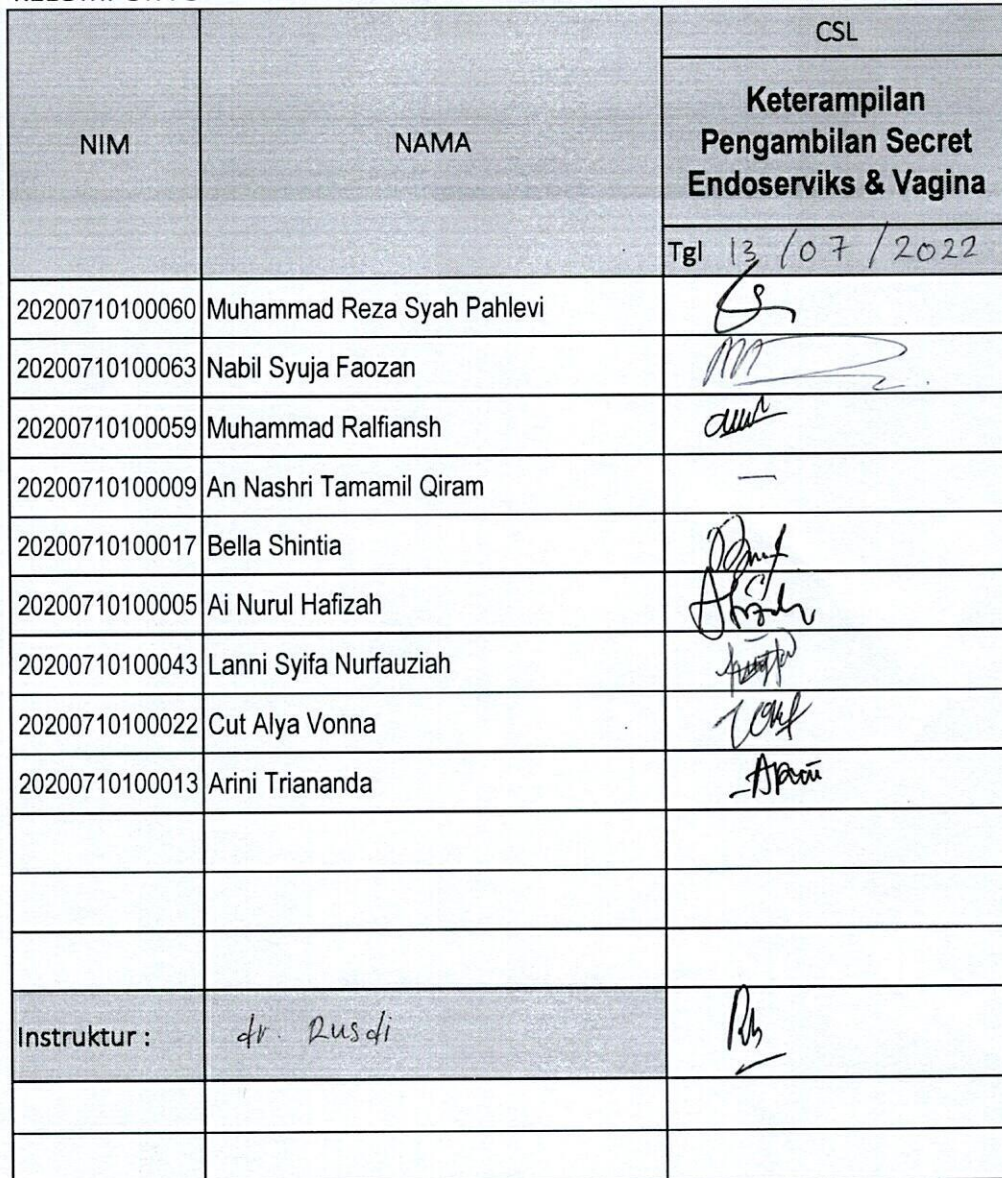 CSL
NIM
NAMA
Keterampilan
Pengambilan Secret
Endoserviks & Vagina
Tgl 13/07/2022
20200710100060 Muhammad Reza Syah Pahlevi
20200710100063 Nabil Syuja Faozan
20200710100059 Muhammad Ralfiansh
20200710100009 An Nashri Tamamil Qiram —
20200710100017 Bella Shintia
20200710100005 Ai Nurul Hafizah
20200710100043 Lanni Syifa Nurfauziah
20200710100022 Cut Alya Vonna
20200710100013 Arini Triananda
Instruktur : dr. Rusdi